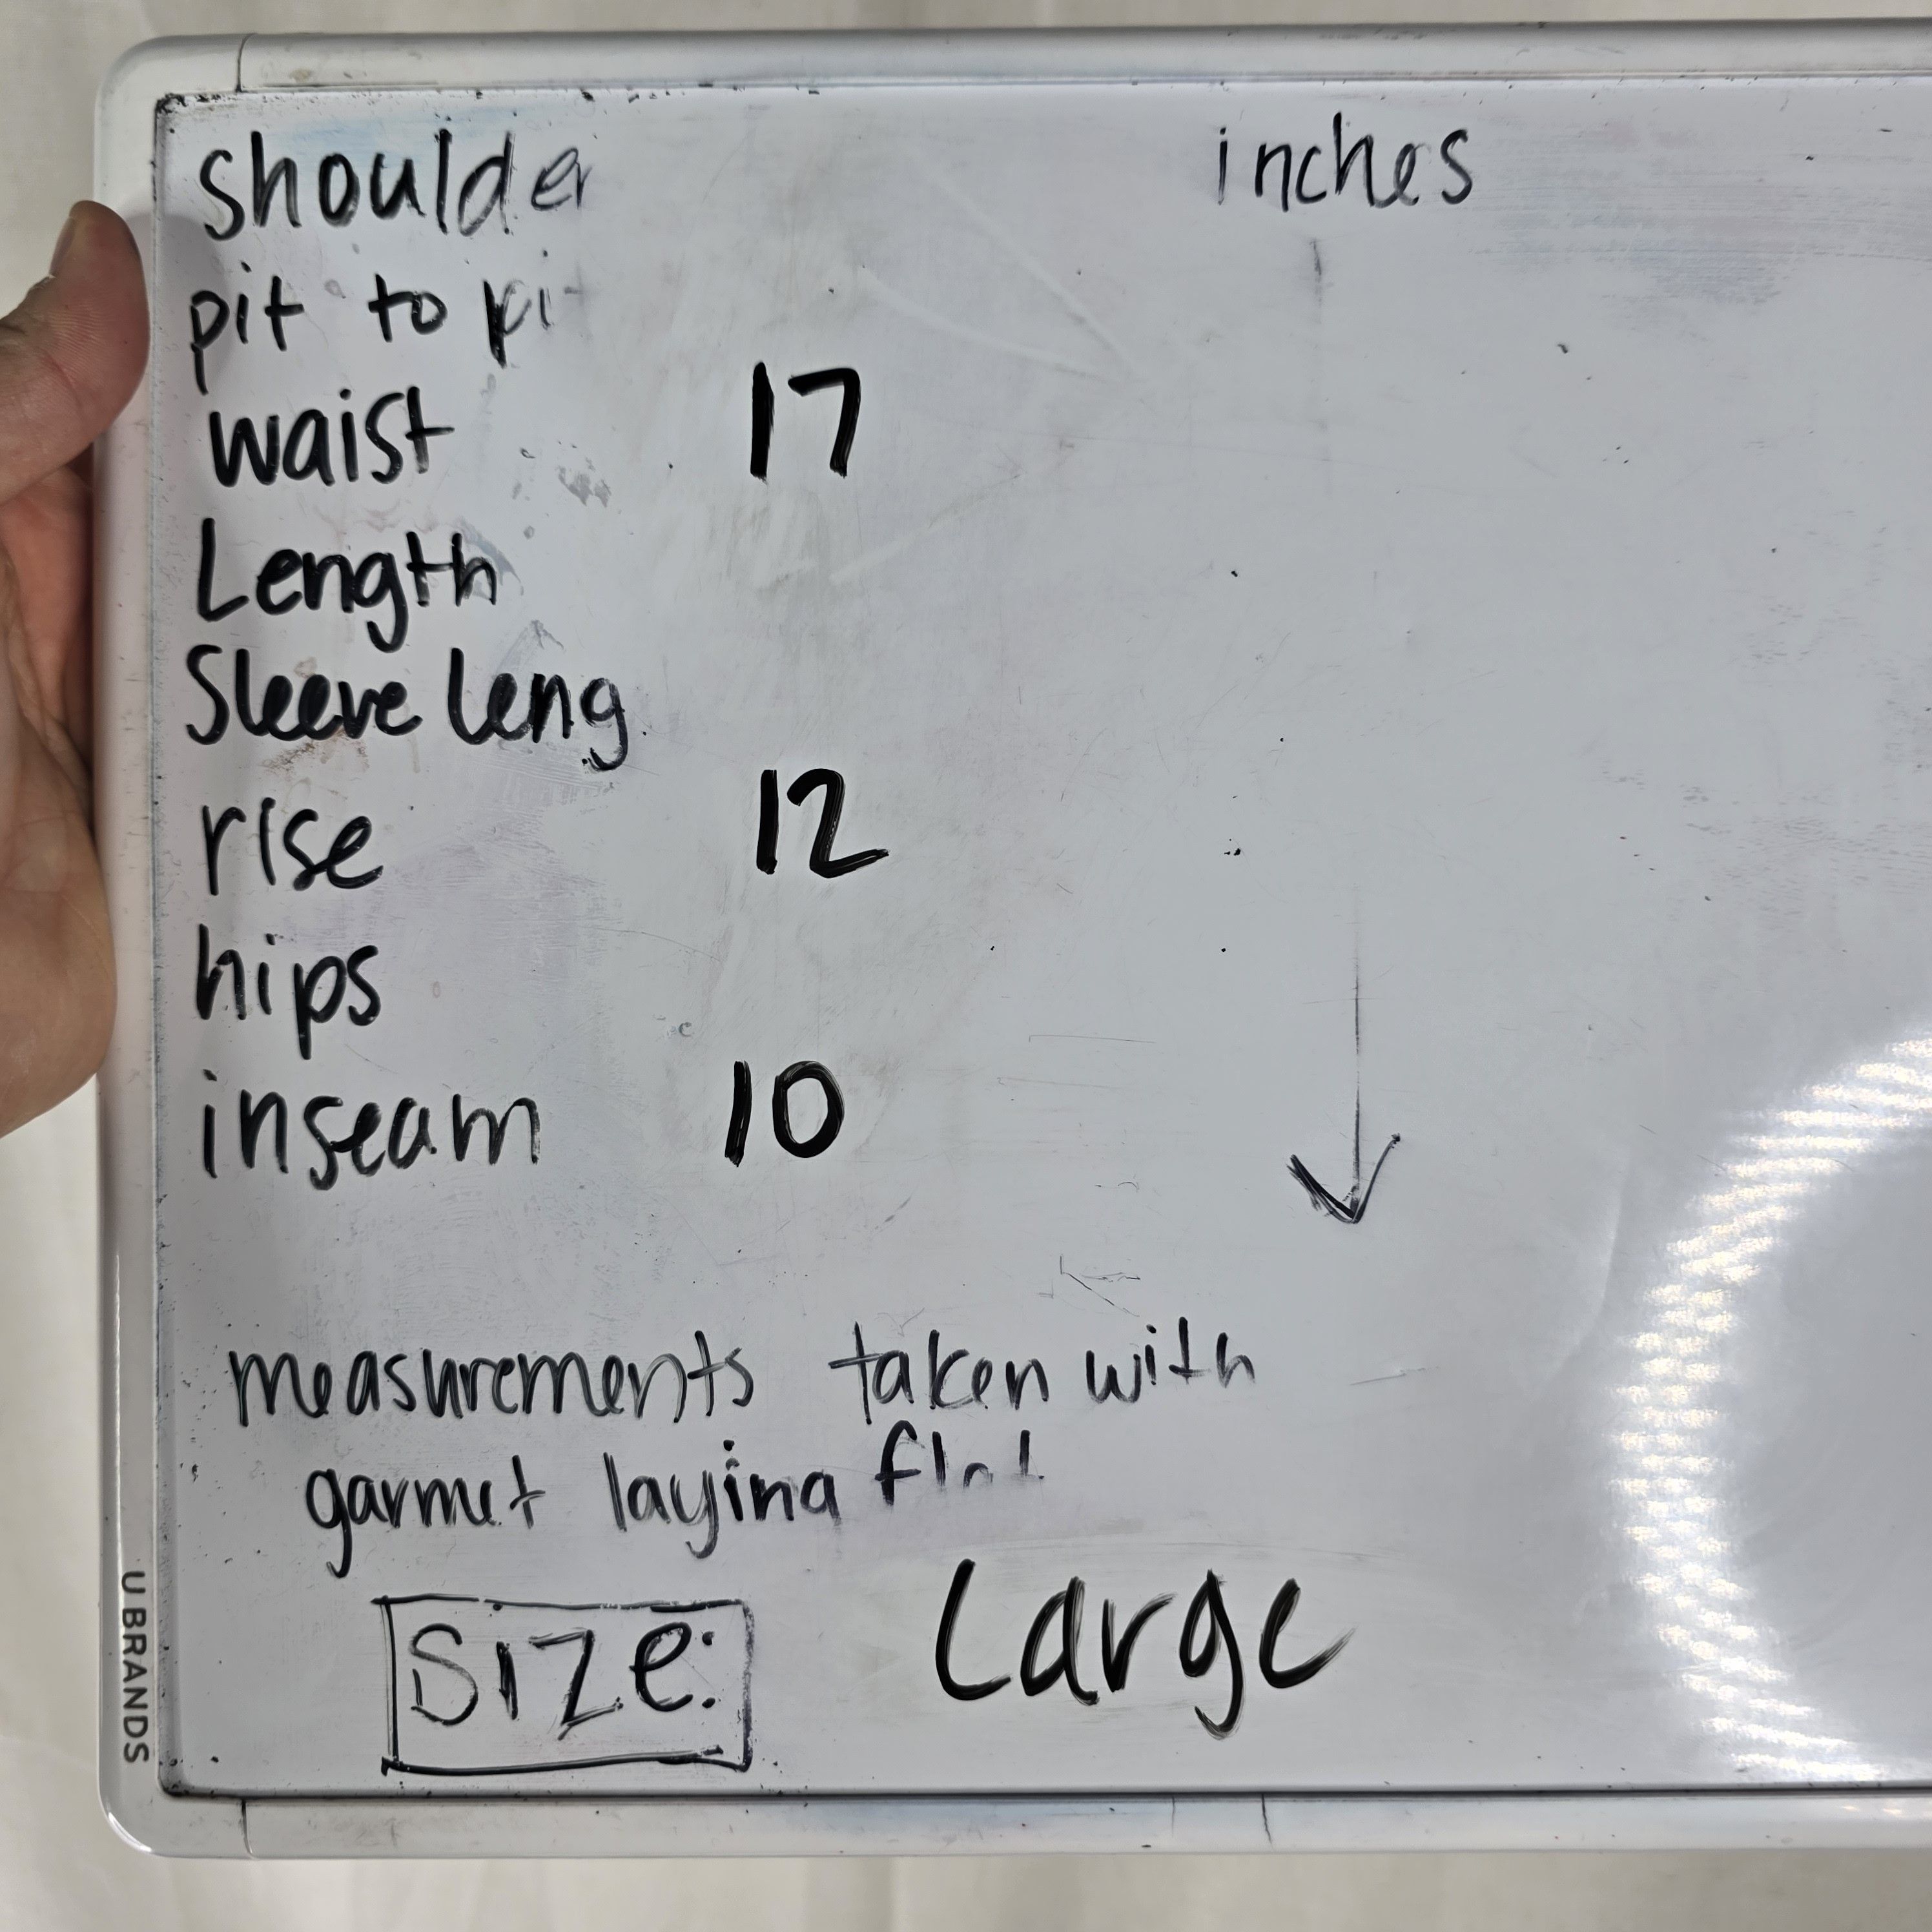 shoulder inches
pit to pit
waist 17
Length
Sleeve leng
rise 12
hips
inseam 10
measurements taken with
garmet laying flat
Size: Large
U BRANDS